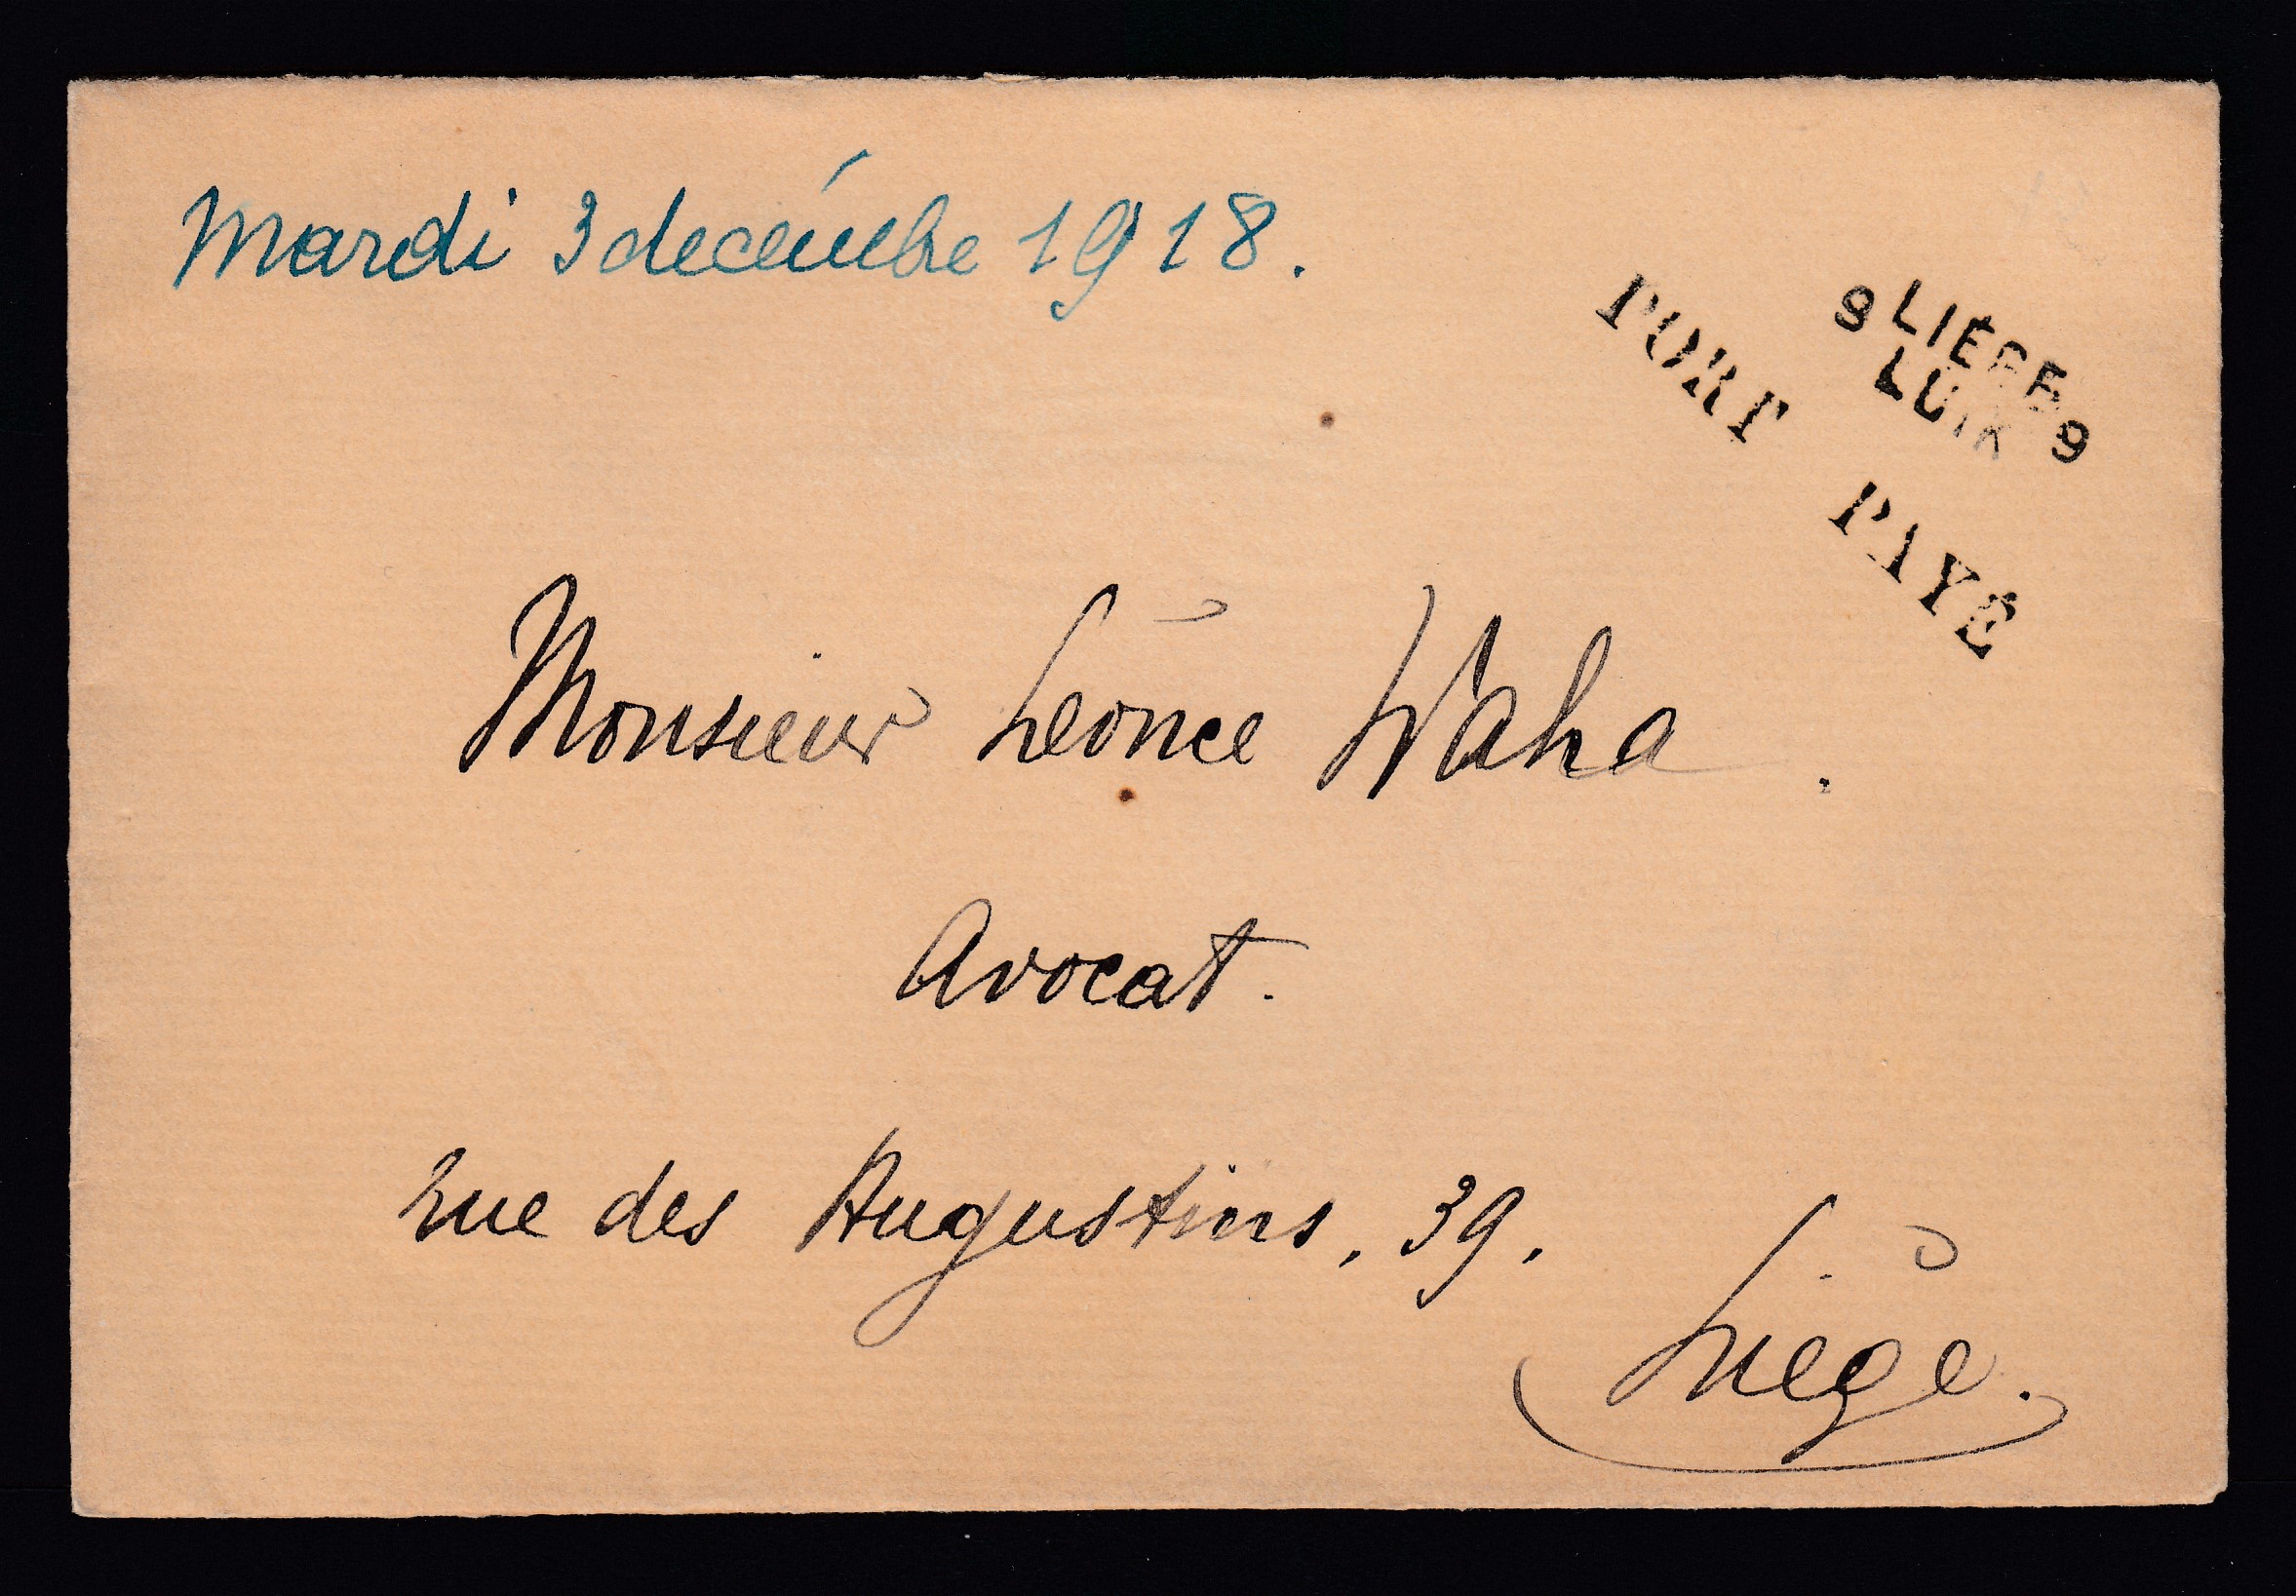 Mardi 3 décembre 1918.
PORT PAYÉ
9 LIÉGE 9
LUIK
Monsieur Léonce Waha.
Avocat.
rue des Augustins, 39,
Liège.